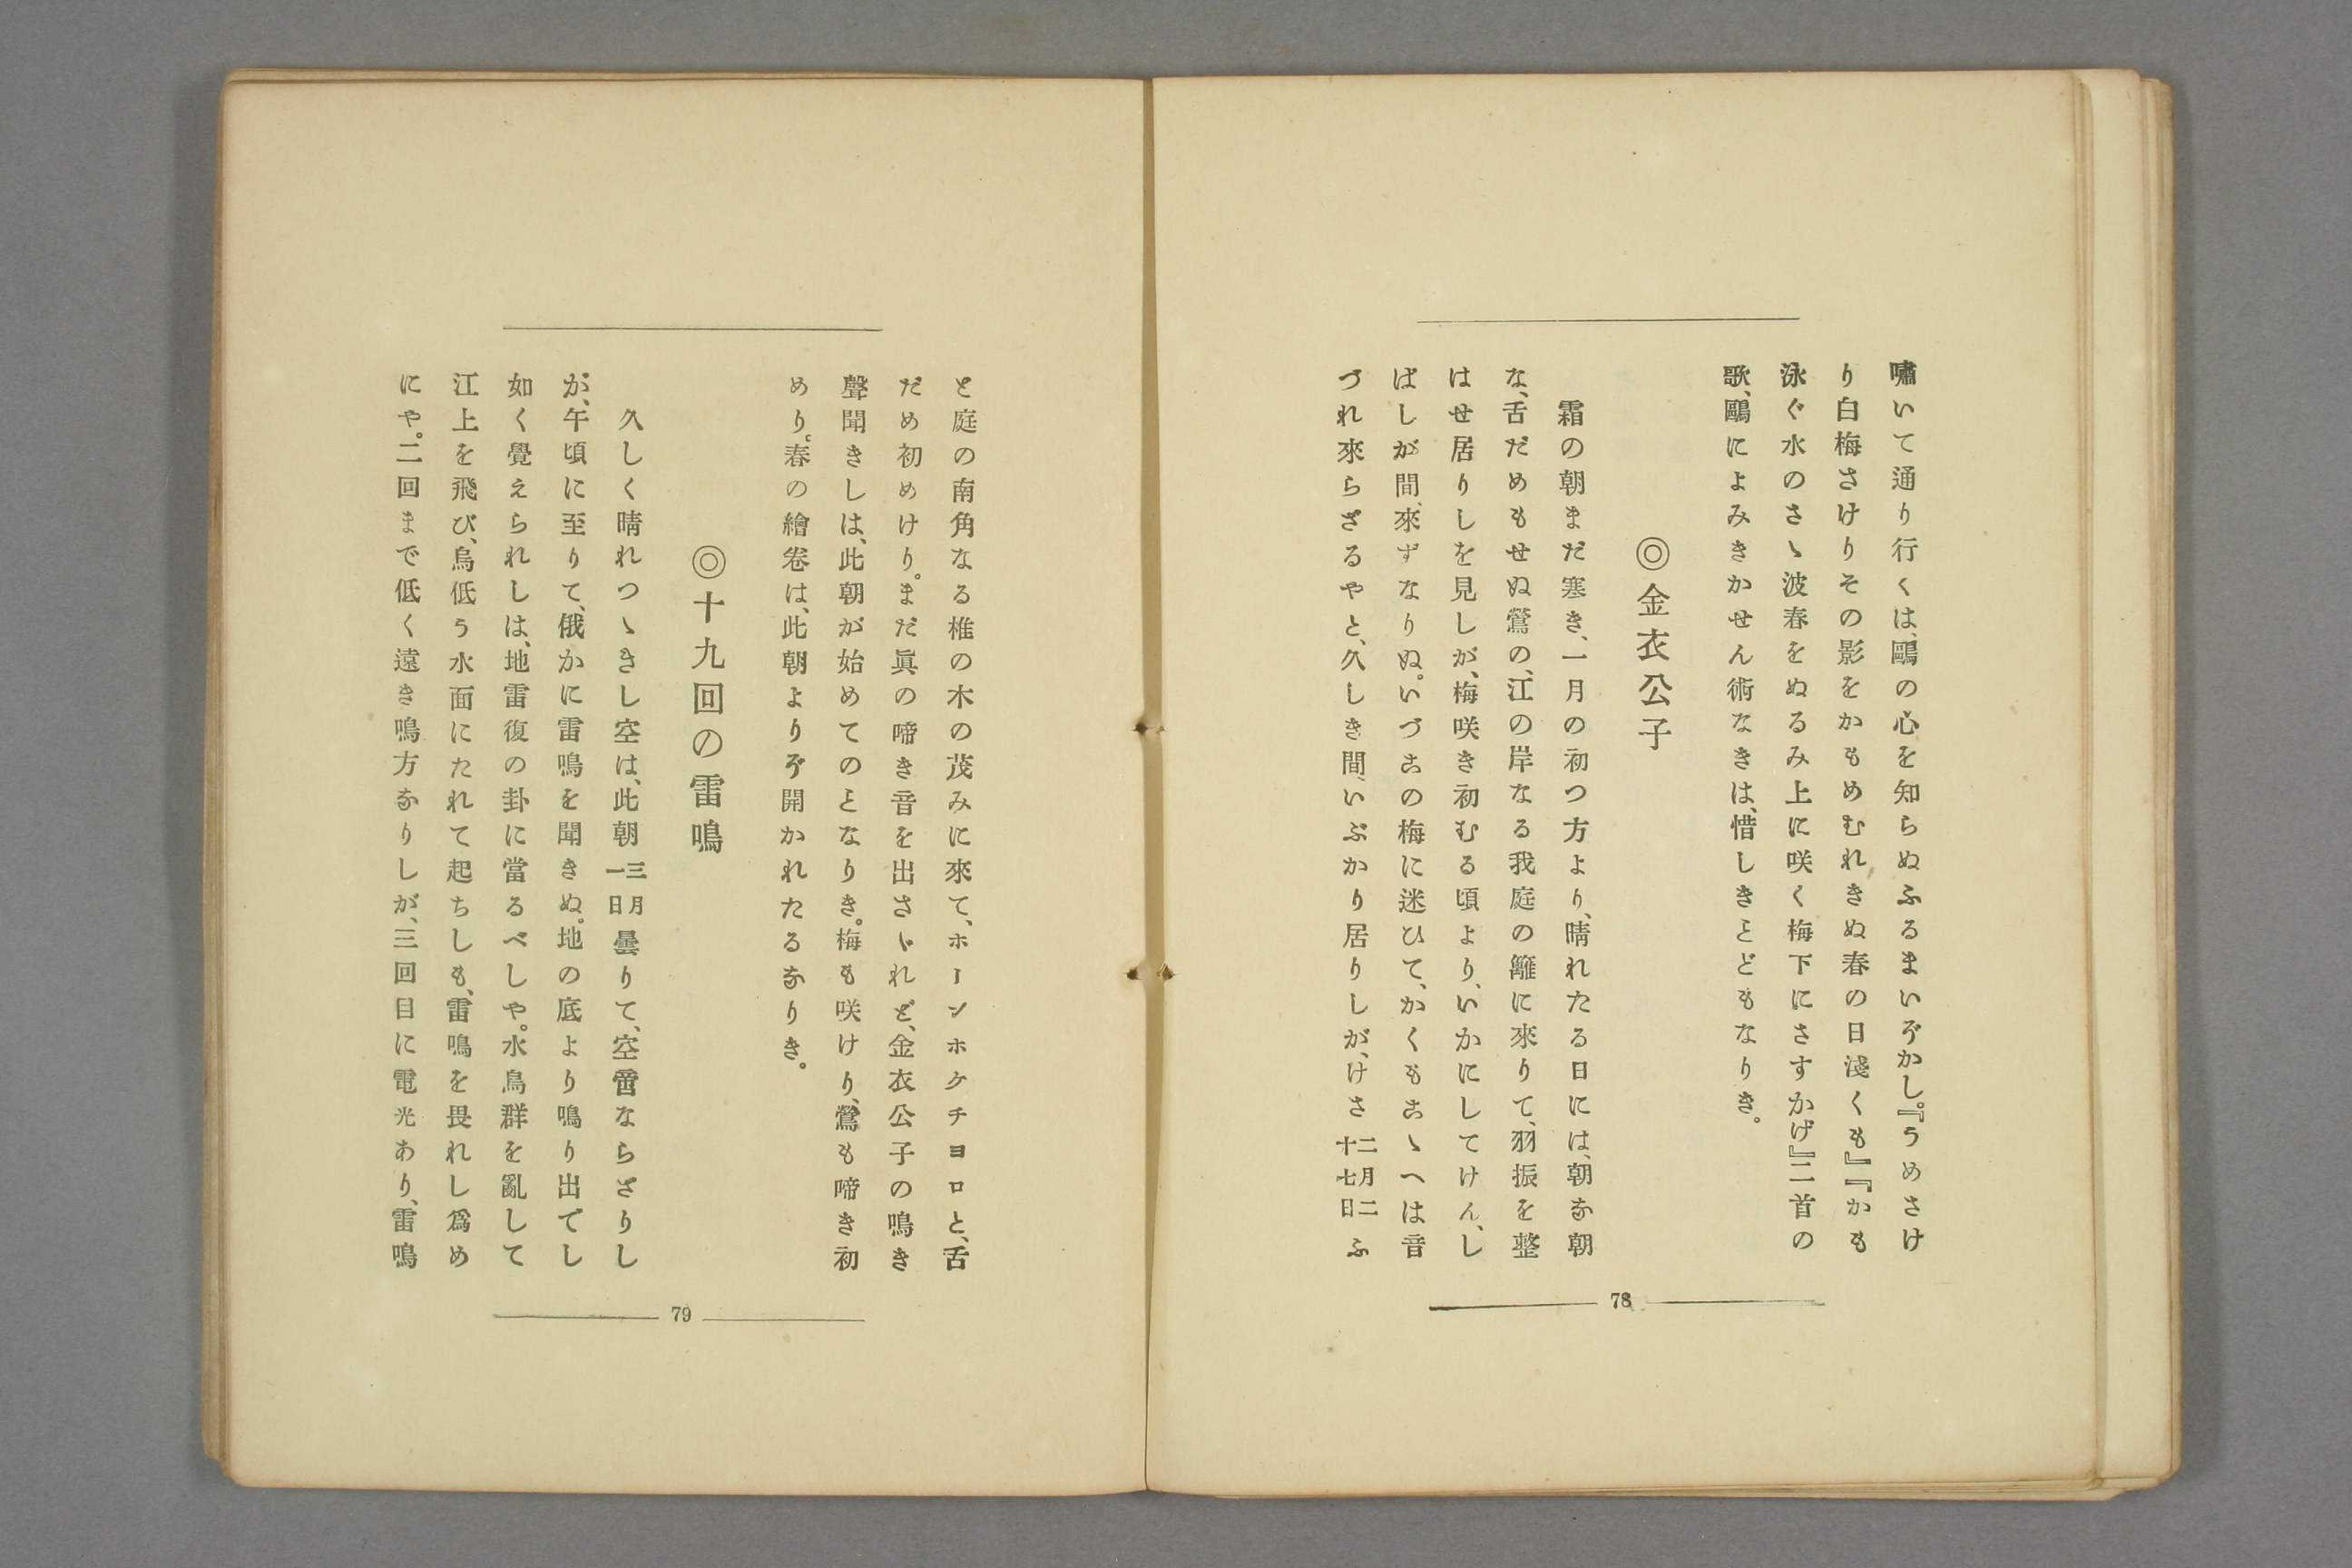 嘯いて通り行くは、鷗の心を知らぬふるまいぞかし。『うめさけ
り白梅さけりその影をかもめむれきぬ春の日淺くも』『かも
泳ぐ水のさゝ波春をぬるみ上に咲く梅下にさすかげ』二首の
歌、鷗によみきかせん術なきは、惜しきことどもなりき。
◎金衣公子
霜の朝まだ寒き、一月の初つ方より、晴れたる日には、朝な朝
な、舌だめもせぬ鶯の、江の岸なる我庭の籬に來りて、羽振を整
はせ居りしを見しが、梅咲き初むる頃より、いかにしてけん、し
ばしが間、來ずなりぬ。いづこの梅に迷ひて、かくもこゝへは音
づれ來らざるやと、久しき間、いぶかり居りしが、けさ二月二十七日ふ
78
と庭の南角なる椎の木の茂みに來て、ホーンホケチヨロと、舌
だめ初めけり。まだ眞の啼き音を出さゞれど、金衣公子の鳴き
聲聞きしは、此朝が始めてのとなりき。梅も咲けり、鶯も啼き初
めり。春の繪卷は、此朝よりぞ開かれたるなりき。
◎十九回の雷鳴
久しく晴れつゝきし空は、此朝三月一日曇りて、空啻ならざりし
が、午頃に至りて、俄かに雷鳴を聞きぬ。地の底より鳴り出でし
如く覺えられしは、地雷復の卦に當るべしや。水鳥群を亂して
江上を飛び、烏低う水面にたれて起ちしも、雷鳴を畏れし爲め
にや。二回まで低く遠き鳴方なりしが、三回目に電光あり、雷鳴
79